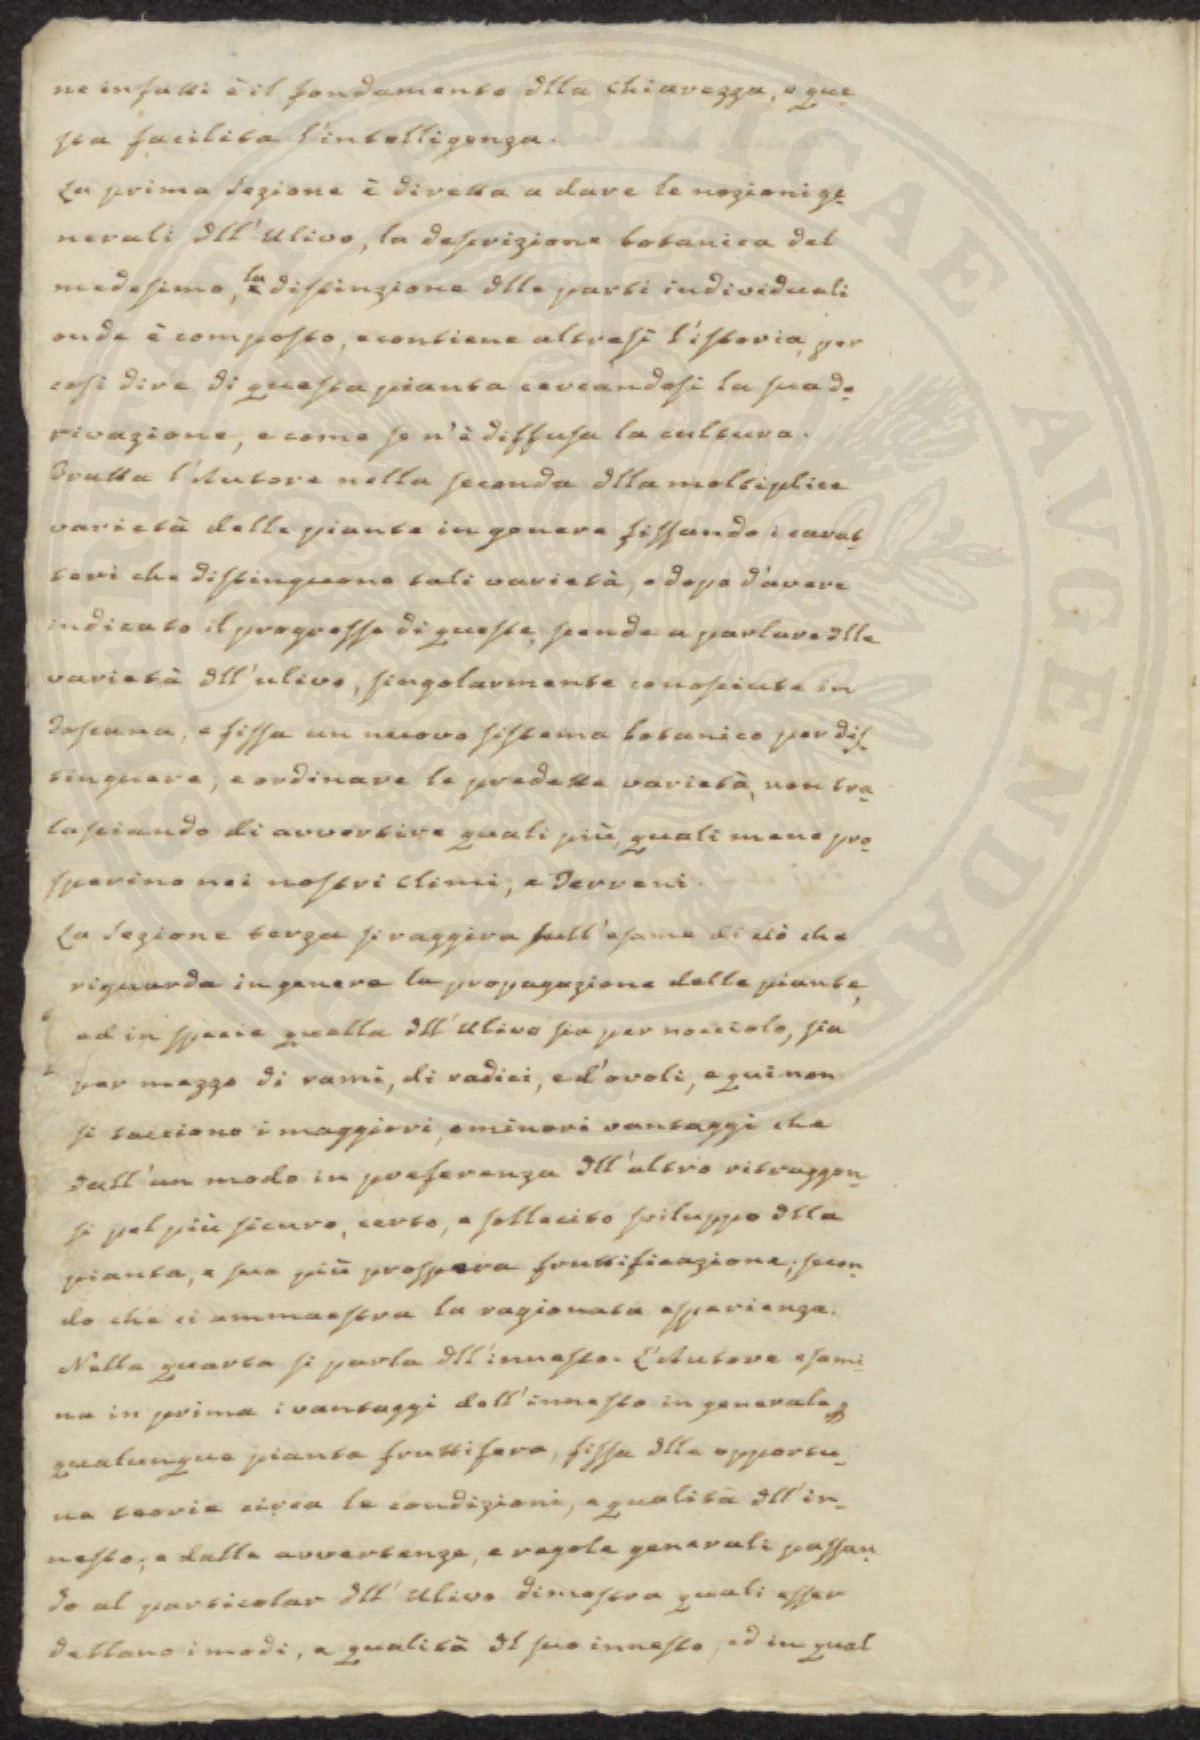 ne infatti è il fondamento dlla Chiarezza, e que-
sta facilita l'intelligenza.
La prima Sezione è diretta a dare le nozioni ge-
nerali dll' Ulivo, la descrizione botanica del
medesimo, la distinzione dlle parti individuali
onde è composto, e contiene altresì l'istoria, per
così dire di questa pianta cercandosi la sua de-
rivazione, e come se n'è diffusa la cultura.
Tratta l'Autore nella seconda dlla moltiplice
varietà delle piante in genere fissando i carat-
teri che distinguono tali varietà, e dopo d'avere
indicato il progresso di queste, scende a parlare dlle
varietà dll'ulivo, singolarmente conosciute in
Toscana, e fissa un nuovo sistema botanico per dis-
tinguere, e ordinare le predette varietà, non tra-
lasciando di avvertire quali più, quali meno pro-
sperino nei nostri Climi, e Terreni.
La Sezione terza si raggira sull'esame di ciò che
riguarda in genere la propagazione delle piante,
ed in specie quella dll'Ulivo sia per nocciolo, sia
per mezzo di rami, di radici, e d'ovoli, e qui non
si tacciono i maggiori, e minori vantaggi che
dall'un modo in preferenza dll'altro ritraggon-
si pel più sicuro, certo, e sollecito sviluppo dlla
pianta, e sua più prospera fruttificazione, secon-
do che ci ammaestra la ragionata esperienza.
Nella quarta si parla dll'innesto. L'Autore esami-
na in prima i vantaggi dell'innesto in generale
qualunque pianta fruttifera, fissa dlle opportu-
ne teorie circa le condizioni, e qualità dll'in-
nesto, e dalle avvertenze, e regole generali passan-
do al particolar dll' Ulivo dimostra quali esser
debbano i modi, e qualità dl suo innesto, ed in qual
PUBLICAE AVGENDAE